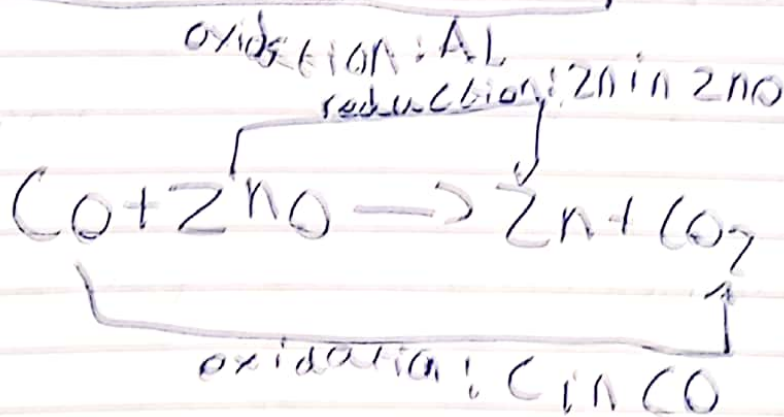 oxidation: AL
reduction: Zn in ZnO
CO + ZnO → Zn + CO2
oxidation: C in CO